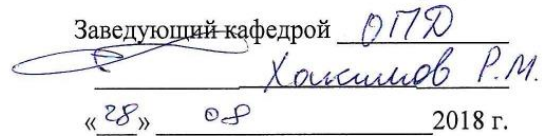 Заведующий кафедрой ОПД
Хакимов Р.М.
«28» 08 2018 г.